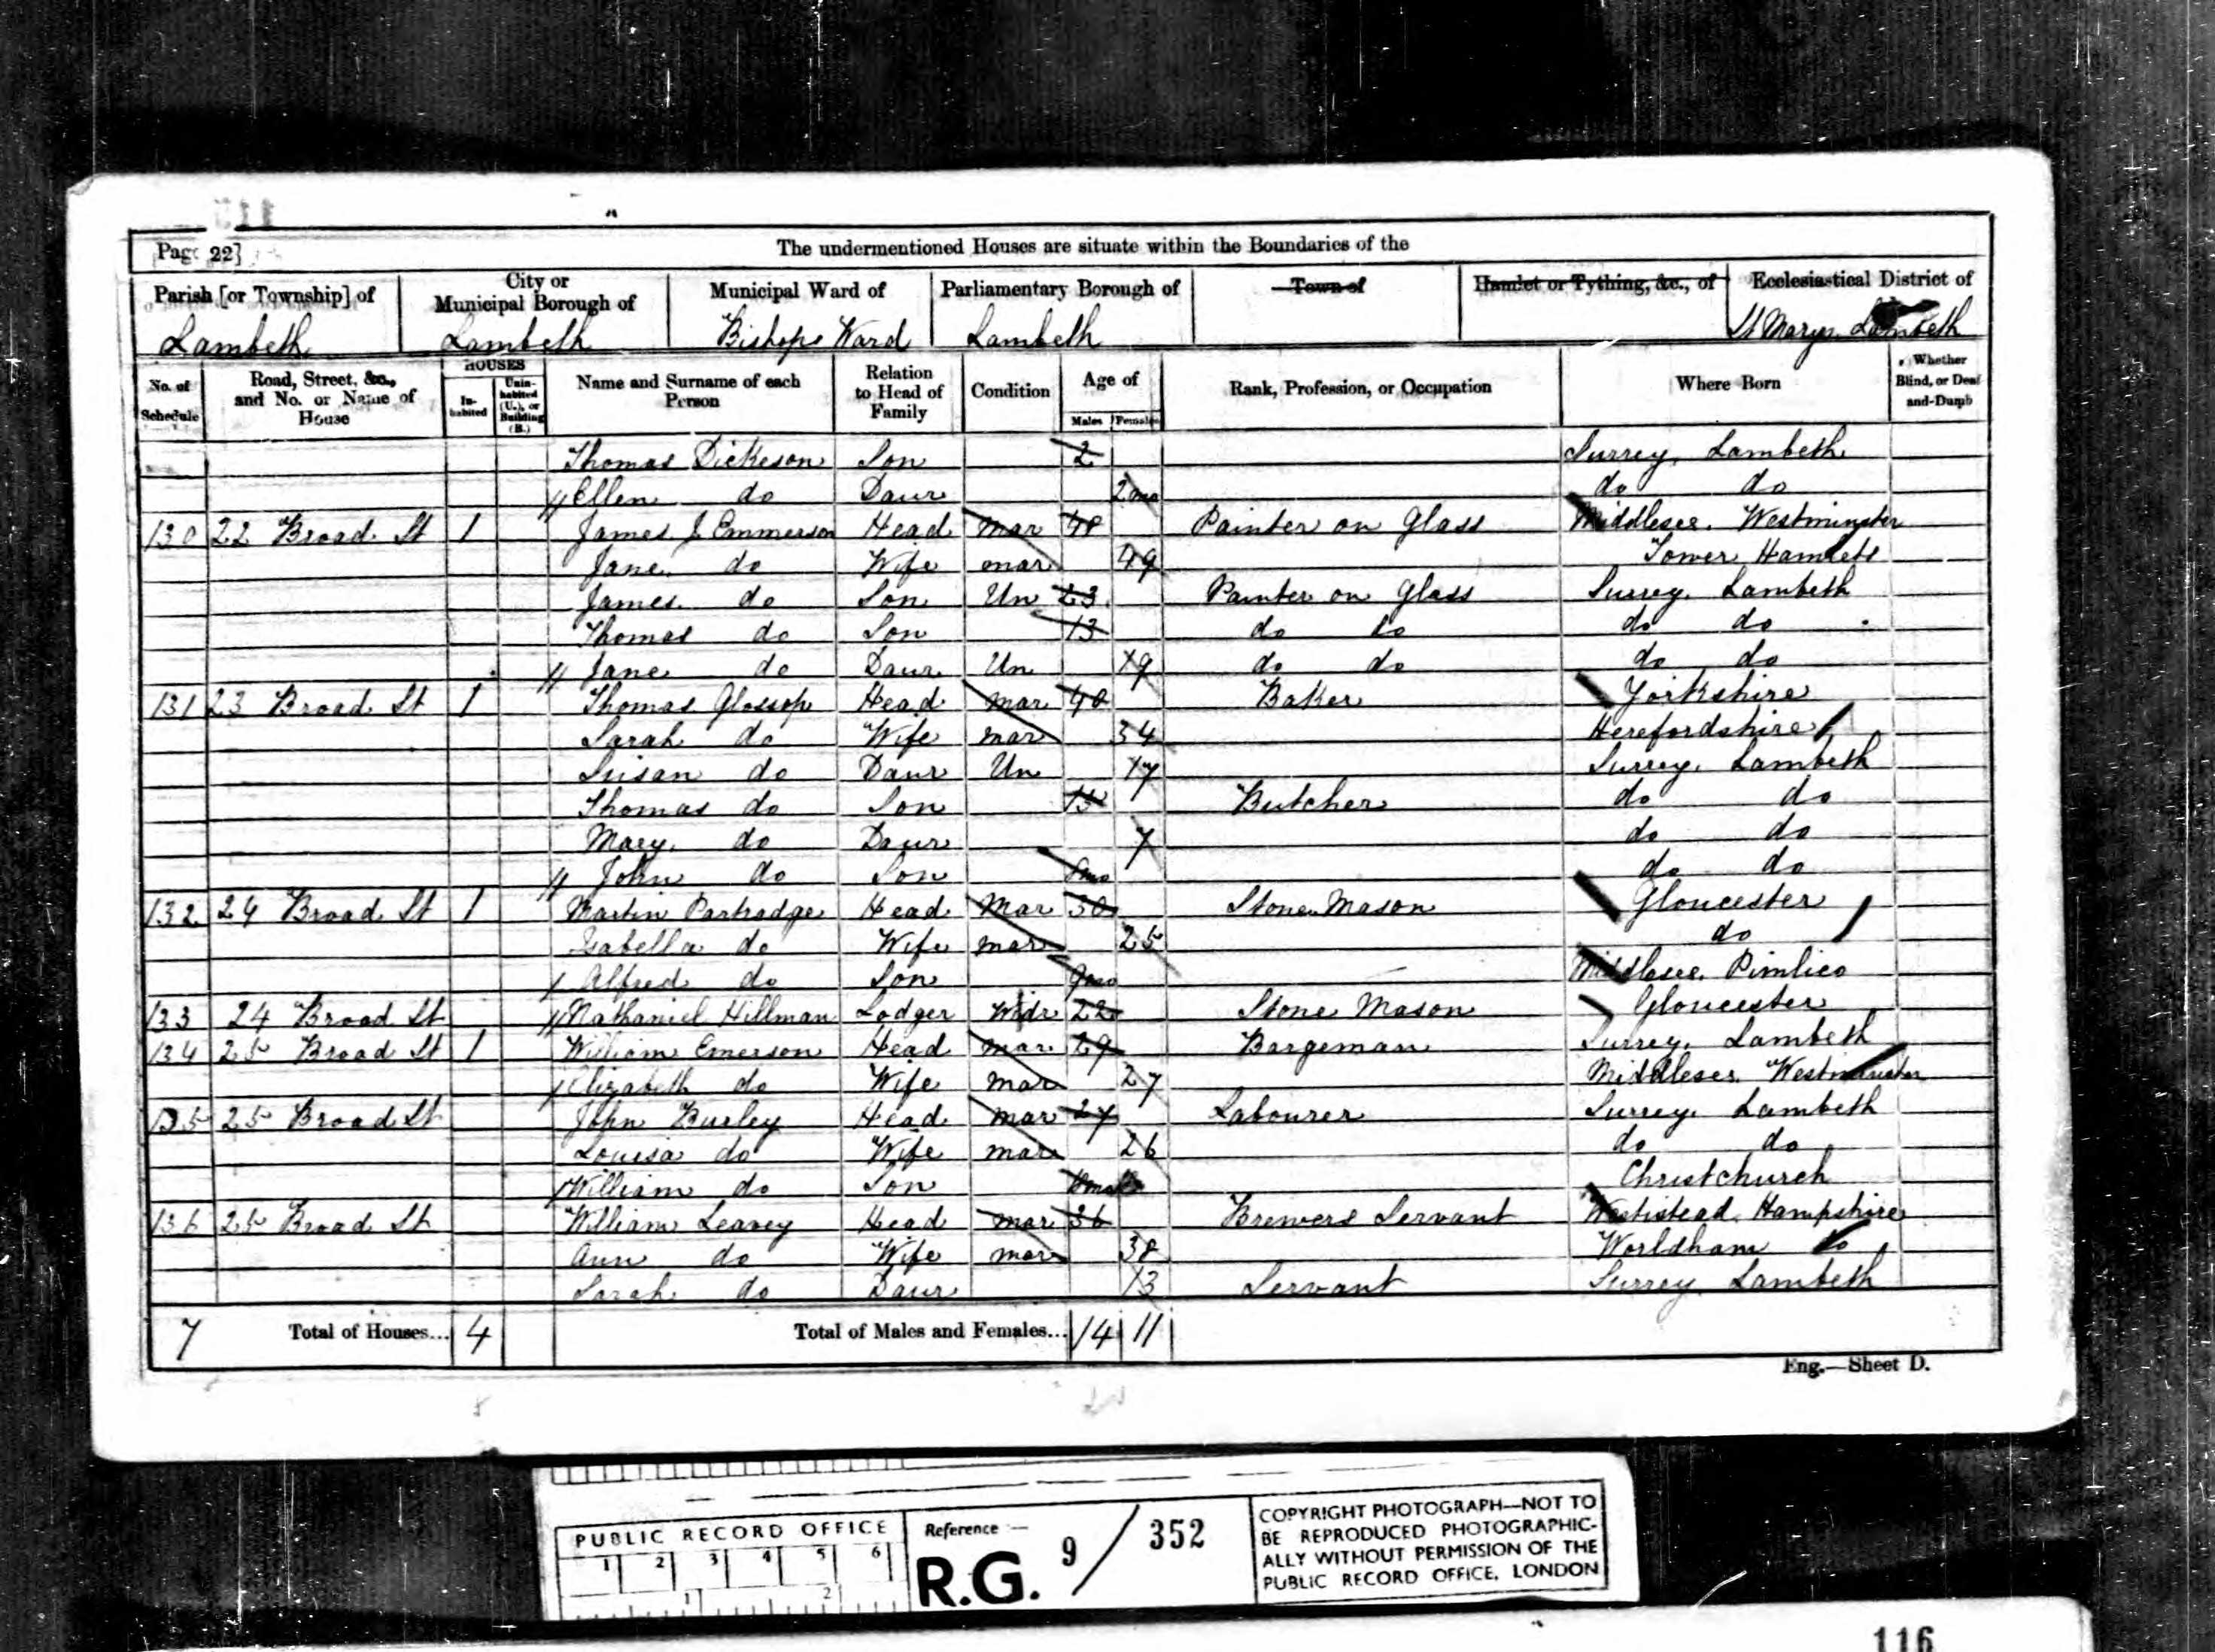 Page 22]
The undermentioned Houses are situate within the Boundaries of the
Parish [or Township] of City or Municipal Borough of Municipal Ward of Parliamentary Borough of Town of Hamlet or Tything, &c., of Ecclesiastical District of
Lambeth Lambeth Bishops Ward Lambeth St Marys Lambeth
No. of Schedule Road, Street, &c., and No. or Name of House HOUSES Inhabited Uninhabited (U.), or Building (B.) Name and Surname of each Person Relation to Head of Family Condition Age of Males Females Rank, Profession, or Occupation Where Born Whether Blind, or Deaf-and-Dumb
Thomas Dickeson Son 2 Surrey Lambeth
Ellen do Daur 2 mo do do
130 22 Broad St 1 James J Emmerson Head Mar 48 Painter on Glass Middlesex Westminster
Jane do Wife mar 49 Tower Hamlets
James do Son Un 23 Painter on Glass Surrey Lambeth
Thomas do Son 13 do do do do
Jane do Daur Un 19 do do do do
131 23 Broad St 1 Thomas Glossop Head mar 40 Baker Yorkshire
Sarah do Wife mar 34 Herefordshire
Susan do Daur Un 17 Surrey Lambeth
Thomas do Son 15 Butcher do do
Mary do Daur 7 do do
John do Son mo do do
132 24 Broad St 1 Martin Partradge Head Mar 30 Stone Mason Gloucester
Isabella do Wife mar 25 do
Alfred do Son mo Middlesex Pimlico
133 24 Broad St Nathaniel Hillman Lodger Widr 22 Stone Mason Gloucester
134 25 Broad St 1 William Emerson Head mar 29 Bargeman Surrey Lambeth
Elizabeth do Wife mar 27 Middlesex Westminster
135 25 Broad St John Burley Head mar 27 Labourer Surrey Lambeth
Louisa do Wife mar 26 do do
William do Son Christchurch
136 25 Broad St William Leavey Head mar 36 Brewers Servant Westistead Hampshire
Ann do Wife mar 38 Worldham do
Sarah do Daur 13 Servant Surrey Lambeth
7 Total of Houses... 4 Total of Males and Females... 14 11
Eng.—Sheet D.
PUBLIC RECORD OFFICE
1 2 3 4 5 6
1 2
Reference :—
R.G. 9 / 352
COPYRIGHT PHOTOGRAPH—NOT TO
BE REPRODUCED PHOTOGRAPHIC-
ALLY WITHOUT PERMISSION OF THE
PUBLIC RECORD OFFICE, LONDON
116